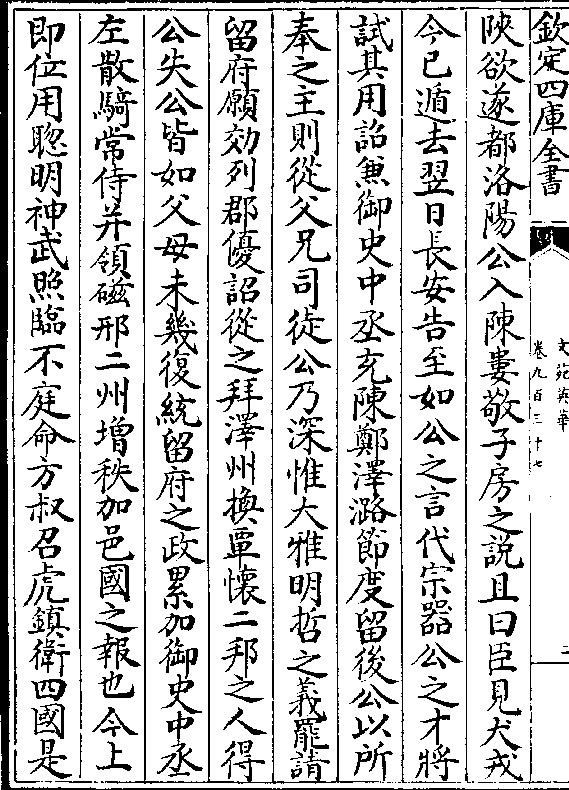 欽定四庫全書
文苑英華
卷九百三十七
二
陜欲遂都洛陽公入陳婁敬子房之說且曰臣見犬戎
今已遁去翌日長安告至如公之言代宗器公之才將
試其用詔兼御史中丞充陳鄭澤潞節度留後公以所
奉之主則從父兄司徒公乃深惟大雅明哲之義罷請
留府願効列郡優詔從之拜澤州換覃懷二邦之人得
公失公皆如父母未幾復統留府之政累加御史中丞
左散騎常侍并領磁邢二州增秩加邑國之報也今上
即位用聰明神武照臨不庭命方叔召虎鎮衛四國是